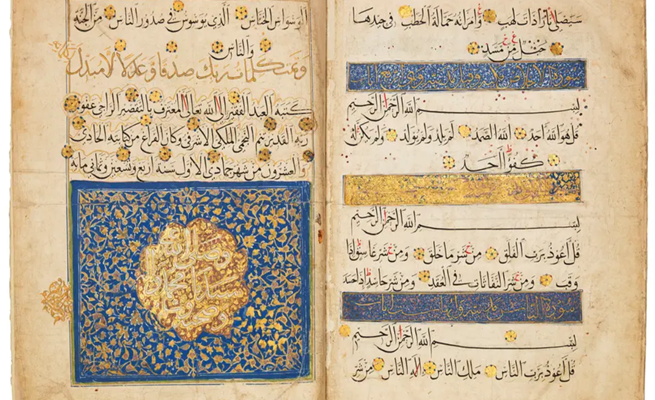 سيصلى نارا ذات لهب وامراته حمالة الحطب في جيدها
حبل من مسد
بسم الله الرحمن الرحيم
قل هو الله احد الله الصمد لم يلد ولم يولد ولم يكن له
كفوا احد
بسم الله الرحمن الرحيم
قل اعوذ برب الفلق من شر ما خلق ومن شر غاسق اذا
وقب ومن شر النفاثات في العقد ومن شر حاسد اذا حسد
بسم الله الرحمن الرحيم
قل اعوذ برب الناس ملك الناس اله الناس من شر
الوسواس الخناس الذي يوسوس في صدور الناس من الجنة
والناس
وتمت كلمات ربك صدقا وعدلا لا مبدل
كتبه العبد الفقير الى الله تعالى المعترف بالتقصير الراجي عفو
ربه القدير الملكي الاشرفي وكان الفراغ من كتابته الحادي
والعشرون من شهر جمادى الاول سنة اربع وتسعين وثماني مايه